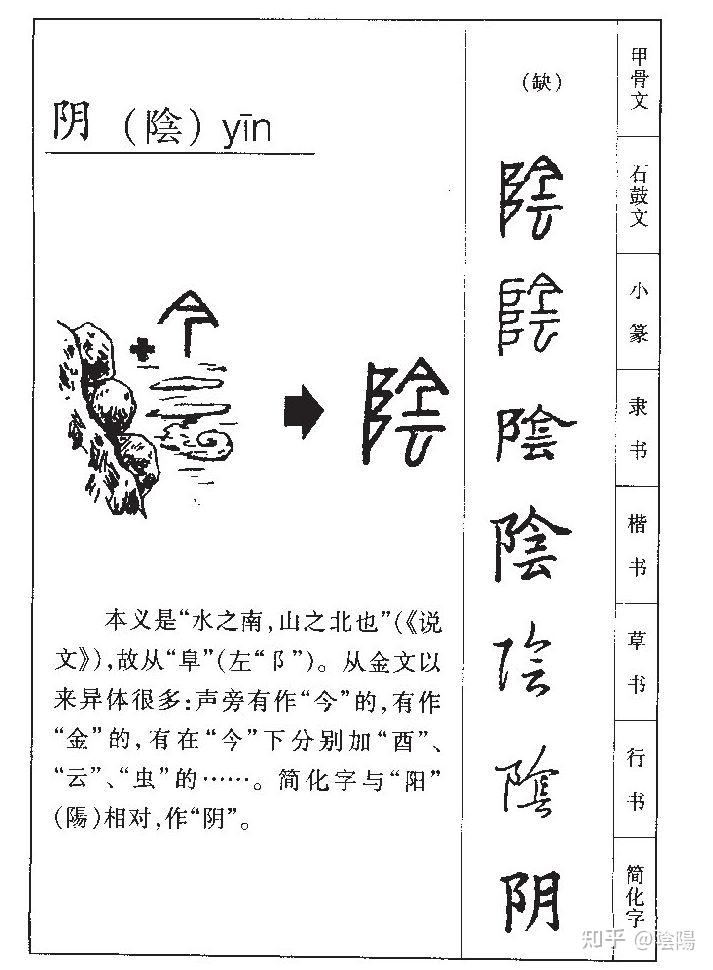 阴（陰）yīn
今
陰
本义是“水之南，山之北也”（《说
文》），故从“阜”（左“阝”）。从金文以
来异体很多：声旁有作“今”的，有作
“金”的，有在“今”下分别加“酉”、
“云”、“虫”的……。简化字与“阳”
（陽）相对，作“阴”。
（缺）
甲骨文
陰
石鼓文
陰
小篆
陰
隶书
陰
楷书
陰
草书
陰
行书
阴
简化字
知乎 @陰陽